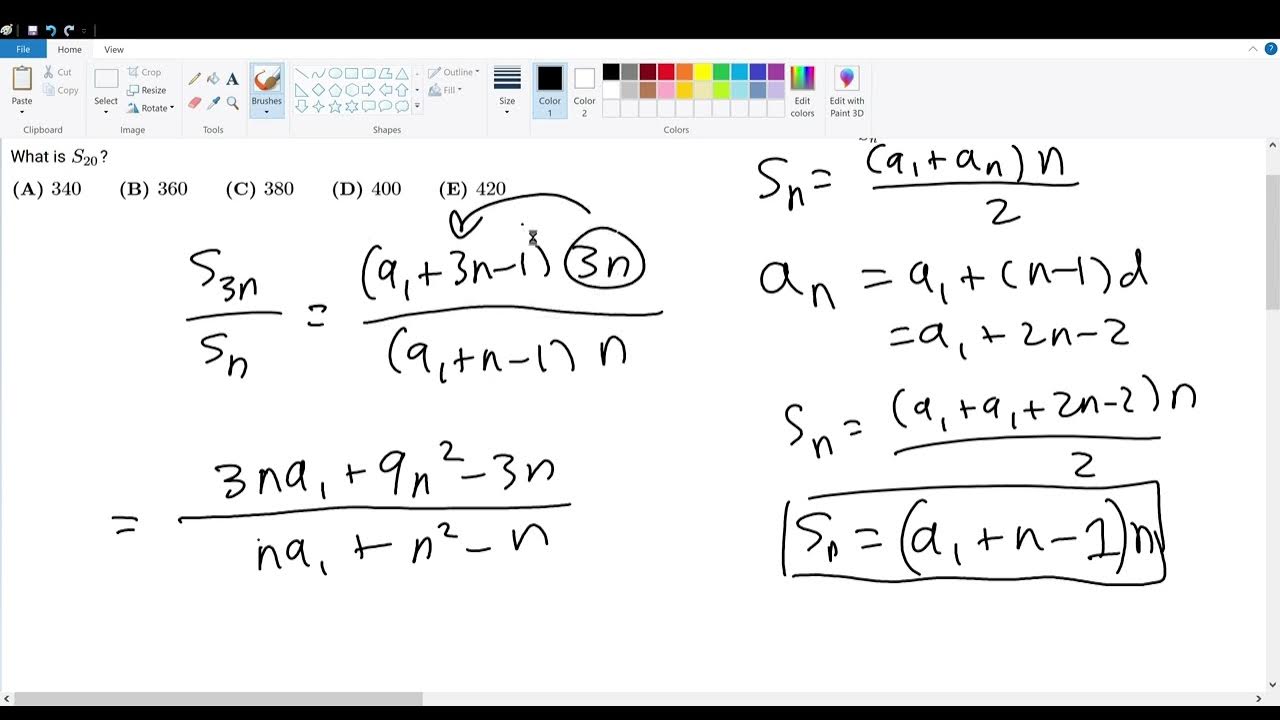 File Home View
Paste Cut Copy Select Crop Resize Rotate Brushes Outline Fill Size Color 1 Color 2 Edit colors Edit with Paint 3D
Clipboard Image Tools Shapes Colors
What is S_{20}?
(A) 340 (B) 360 (C) 380 (D) 400 (E) 420
S_{3n}/S_n = (a_1+3n-1)(3n)/(a_1+n-1)n
= 3na_1+9n^2-3n/na_1+n^2-n
S_n = (a_1+a_n)n/2
a_n = a_1+(n-1)d
=a_1+2n-2
S_n = (a_1+a_1+2n-2)n/2
S_n = (a_1+n-1)n